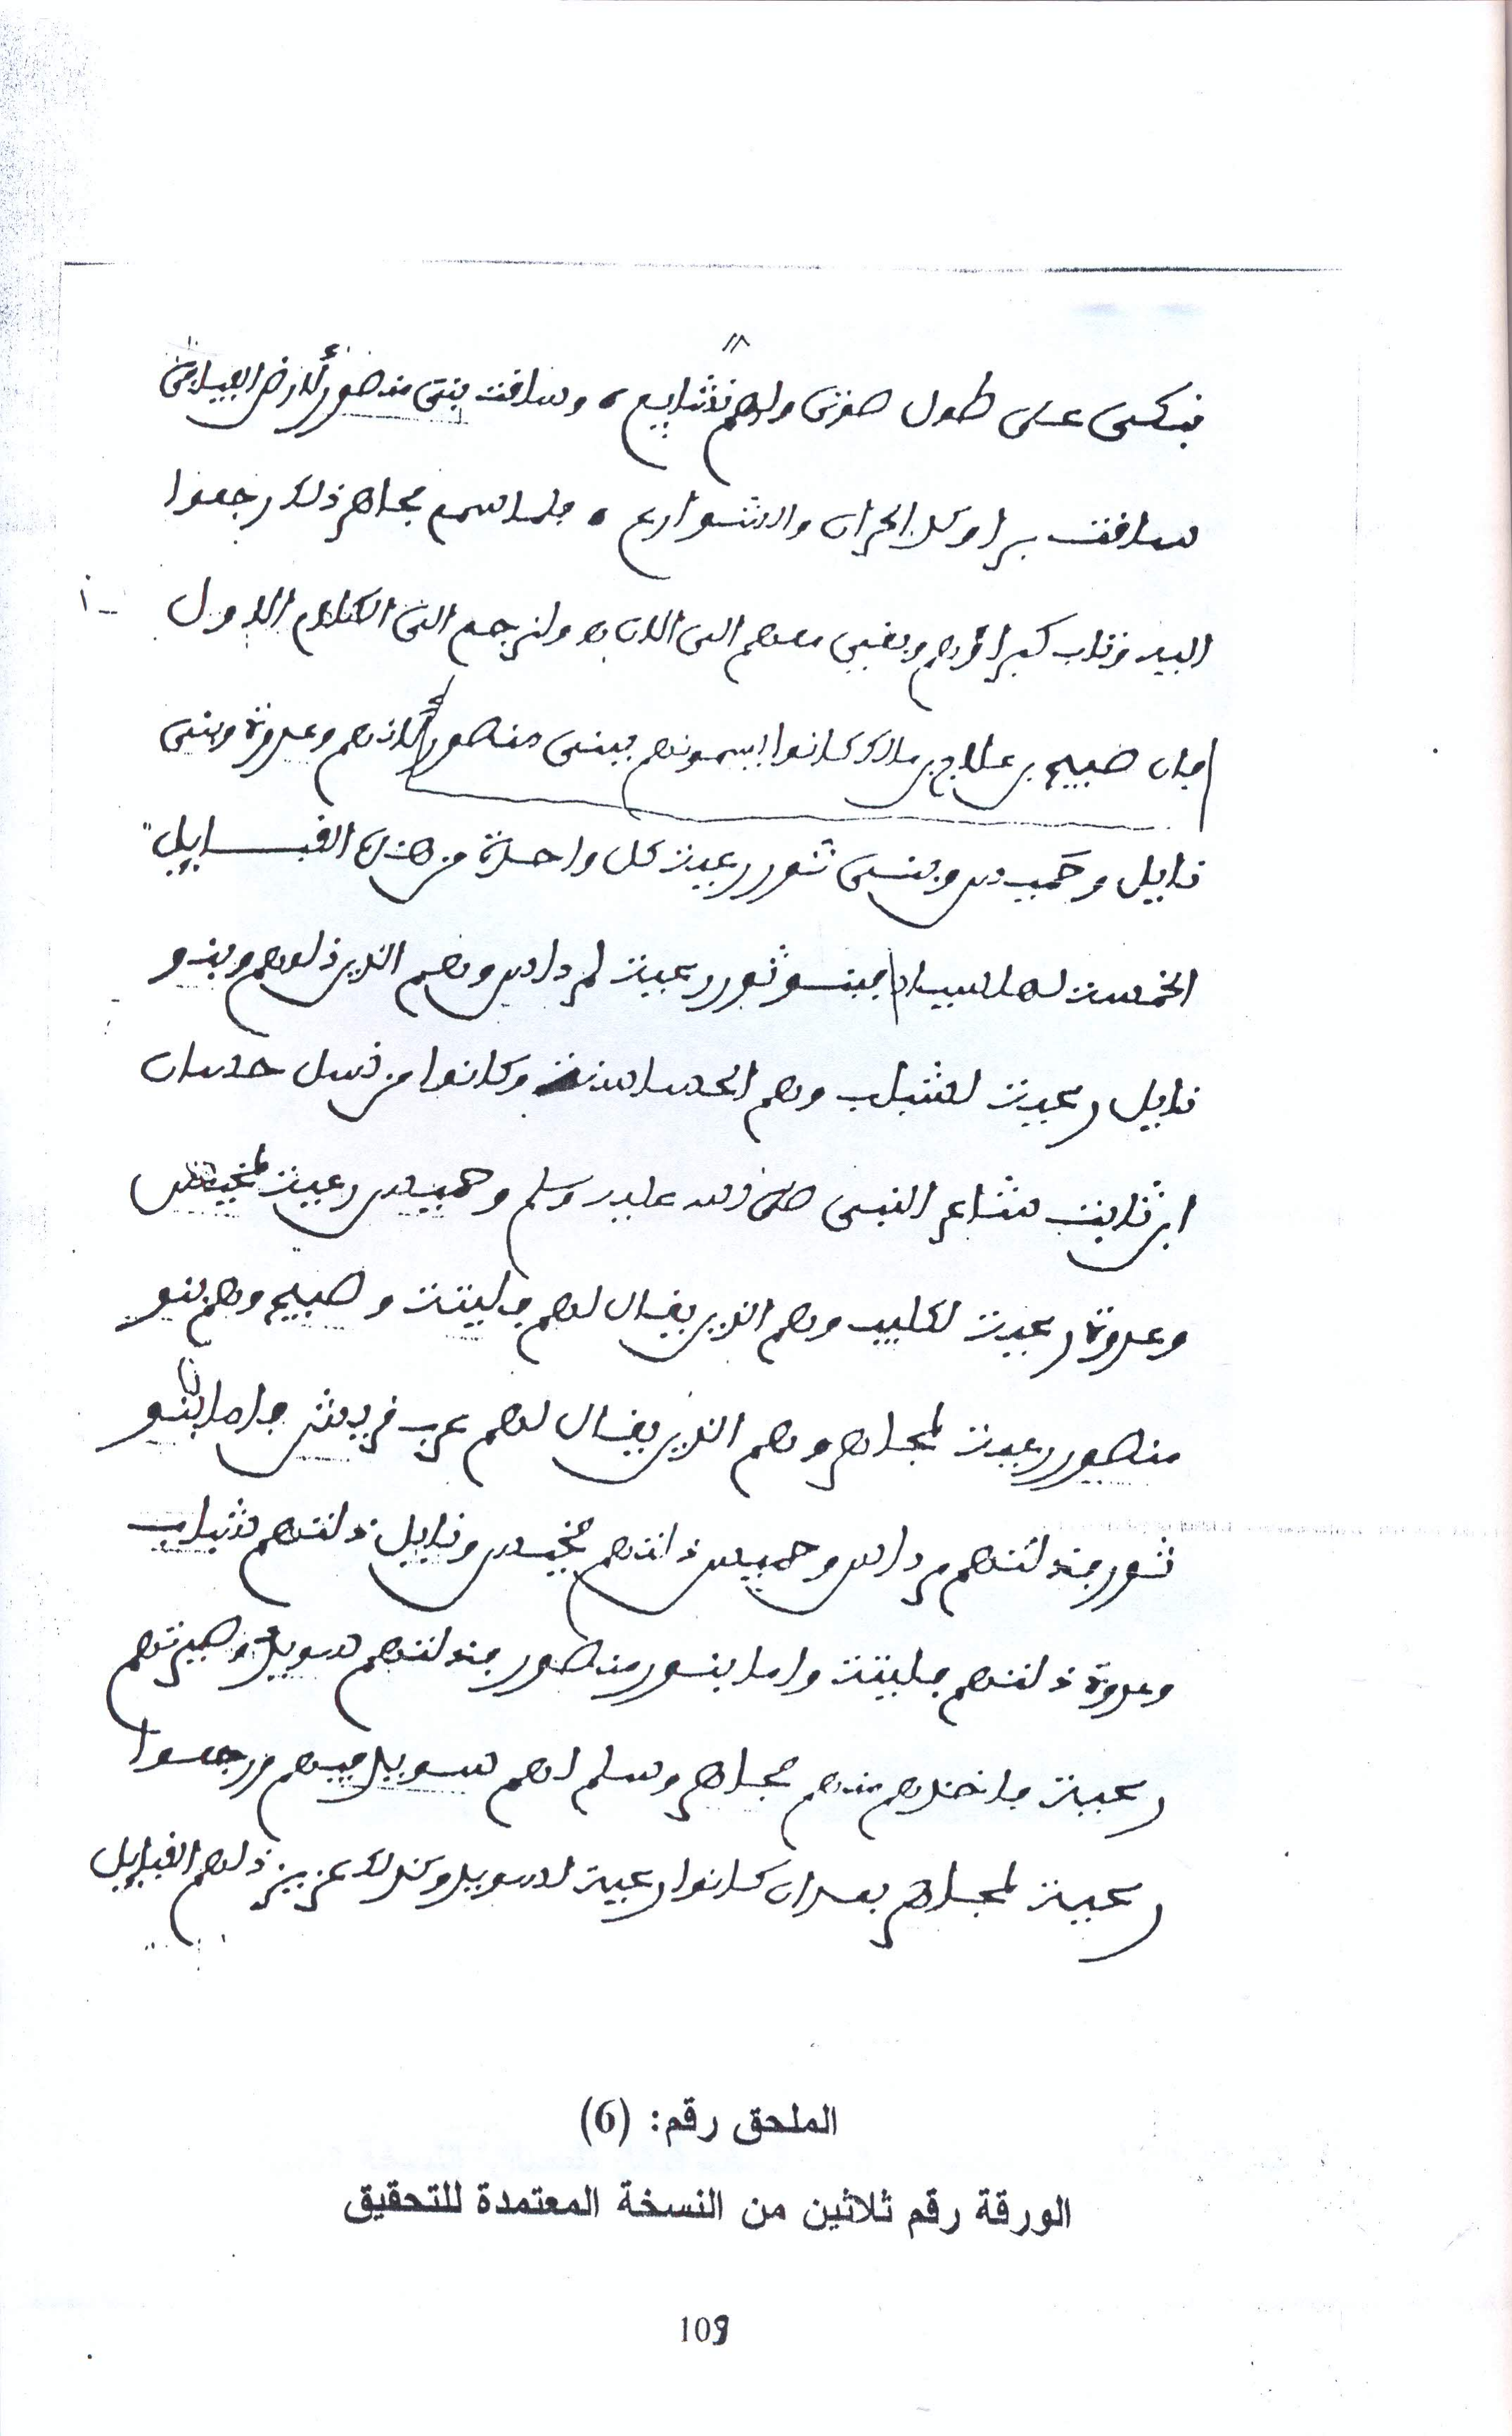 فبكى على طول حزني ولاهم نشايع، وساقت بني منصور لأرض الفيافي
ساقت برا وكل الحران والشوارع، فلما سمع مجاهر ذلك رجعوا
اليه وتاب كبراؤهم وبقي معهم الى الان ولنرجع الى الكلام الاول
فان صبيح بن علاج بن مالك كانوا يسمونهم ببني منصور لانهم وعروة وبني
نايل وحميس وبني ثور رعية كل واحدة من هذه القبايل
الخمسة لها اسياد فبنو ثور رعية لمرداس وهم الذين ذلوهم وبنو
نايل رعية لشباب وهم الحساسنة وكانوا من نسل حسان
ابن ثابت شاعر النبي صلى الله عليه وسلم وحميس رعية لمخيس
وعروة رعية لكليب وهم الذين يقال لهم فليتة وصبيح وهم بنو
منصور رعية لمجاهر وهم الذين يقال لهم عرب قريش فاما بنو
ثور فذلتهم مرداس وحميس ذلتهم مخيس ونايل ذلتهم شباب
وعروة ذلتهم فليتة واما بنو منصور فذلتهم سويد وصيرتهم
رعية فاخذهم منهم مجاهر وسلم لهم سويد فيهم ورجعوا
رعية لمجاهر بعد ان كانوا رعية لسويد وكذلك عزيز ذلهم القبايل
الملحق رقم: (6)
الورقة رقم ثلاثين من النسخة المعتمدة للتحقيق
109